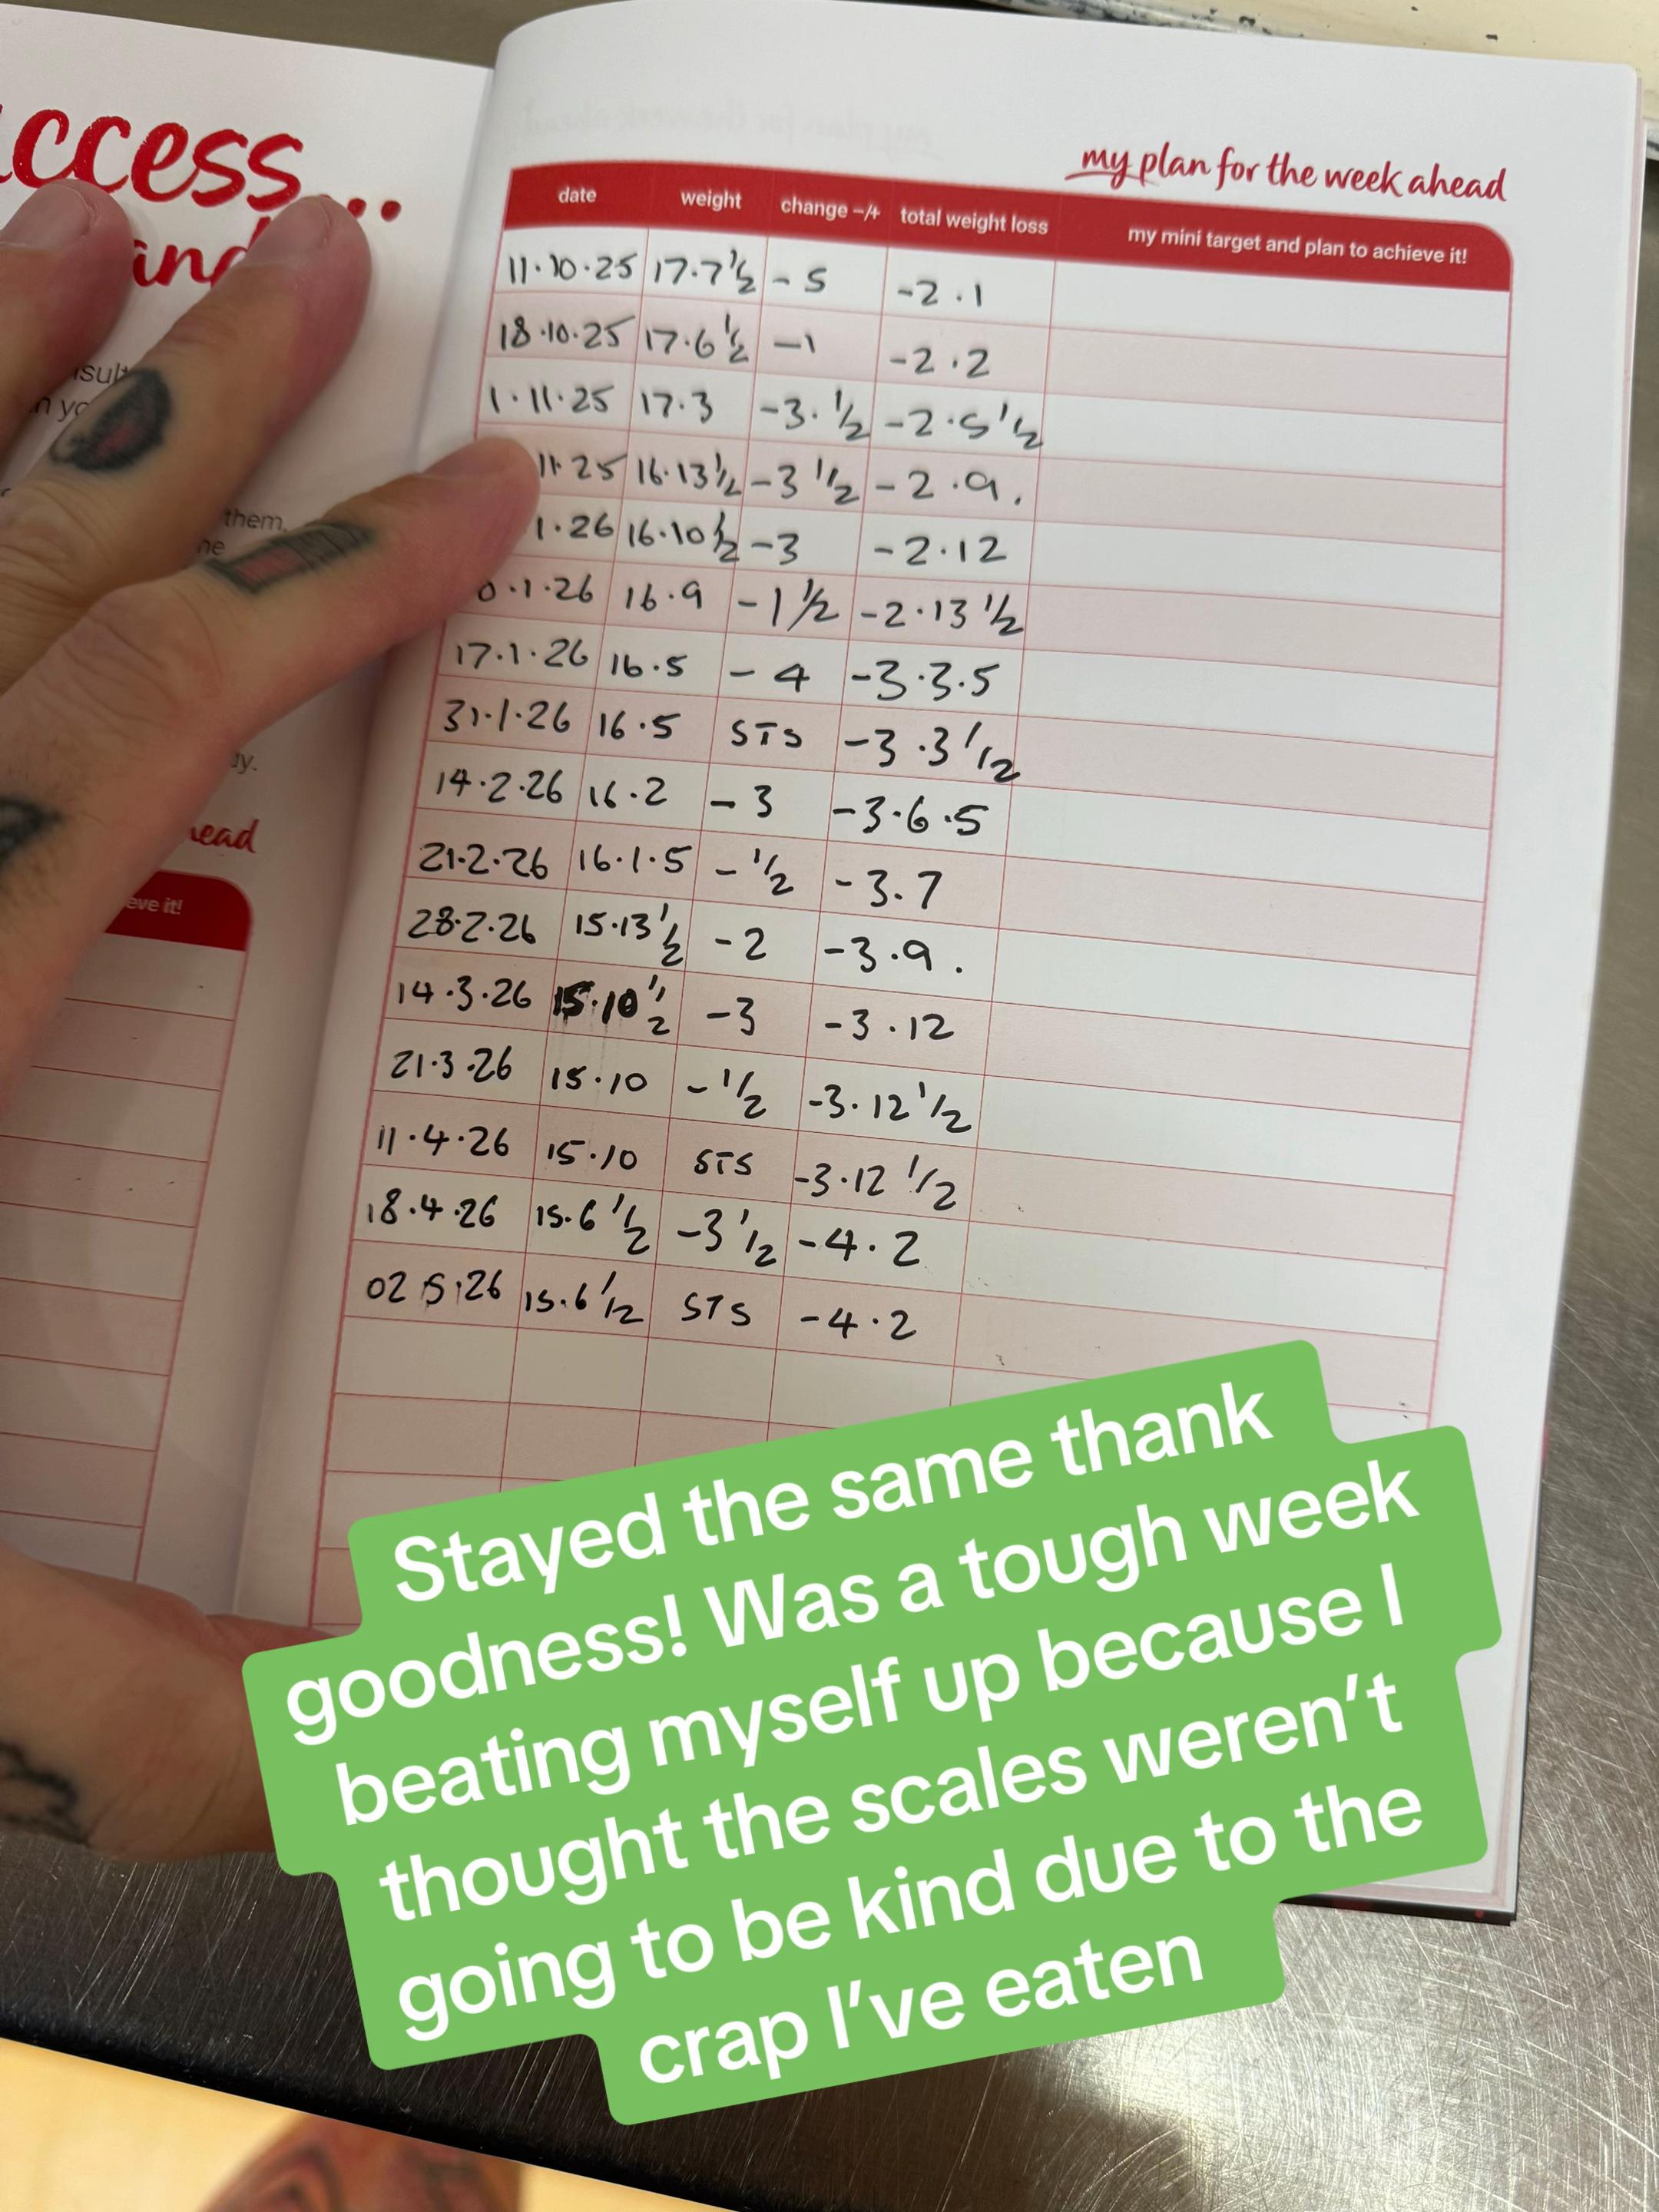 ccess...
and
them.
ead
eve it!
my plan for the week ahead
date weight change -/+ total weight loss my mini target and plan to achieve it!
11.10.25 17.7½ -5 -2.1
18.10.25 17.6½ -1 -2.2
1.11.25 17.3 -3.½ -2.5½
11.25 16.13½ -3½ -2.9.
1.26 16.10½ -3 -2.12
.1.26 16.9 -1½ -2.13½
17.1.26 16.5 -4 -3.3.5
31.1.26 16.5 STS -3.3½
14.2.26 16.2 -3 -3.6.5
21.2.26 16.1.5 -½ -3.7
28.2.26 15.13½ -2 -3.9.
14.3.26 15.10½ -3 -3.12
21.3.26 15.10 -½ -3.12½
11.4.26 15.10 STS -3.12½
18.4.26 15.6½ -3½ -4.2
02.5.26 15.6½ STS -4.2
Stayed the same thank
goodness! Was a tough week
beating myself up because I
thought the scales weren't
going to be kind due to the
crap I've eaten